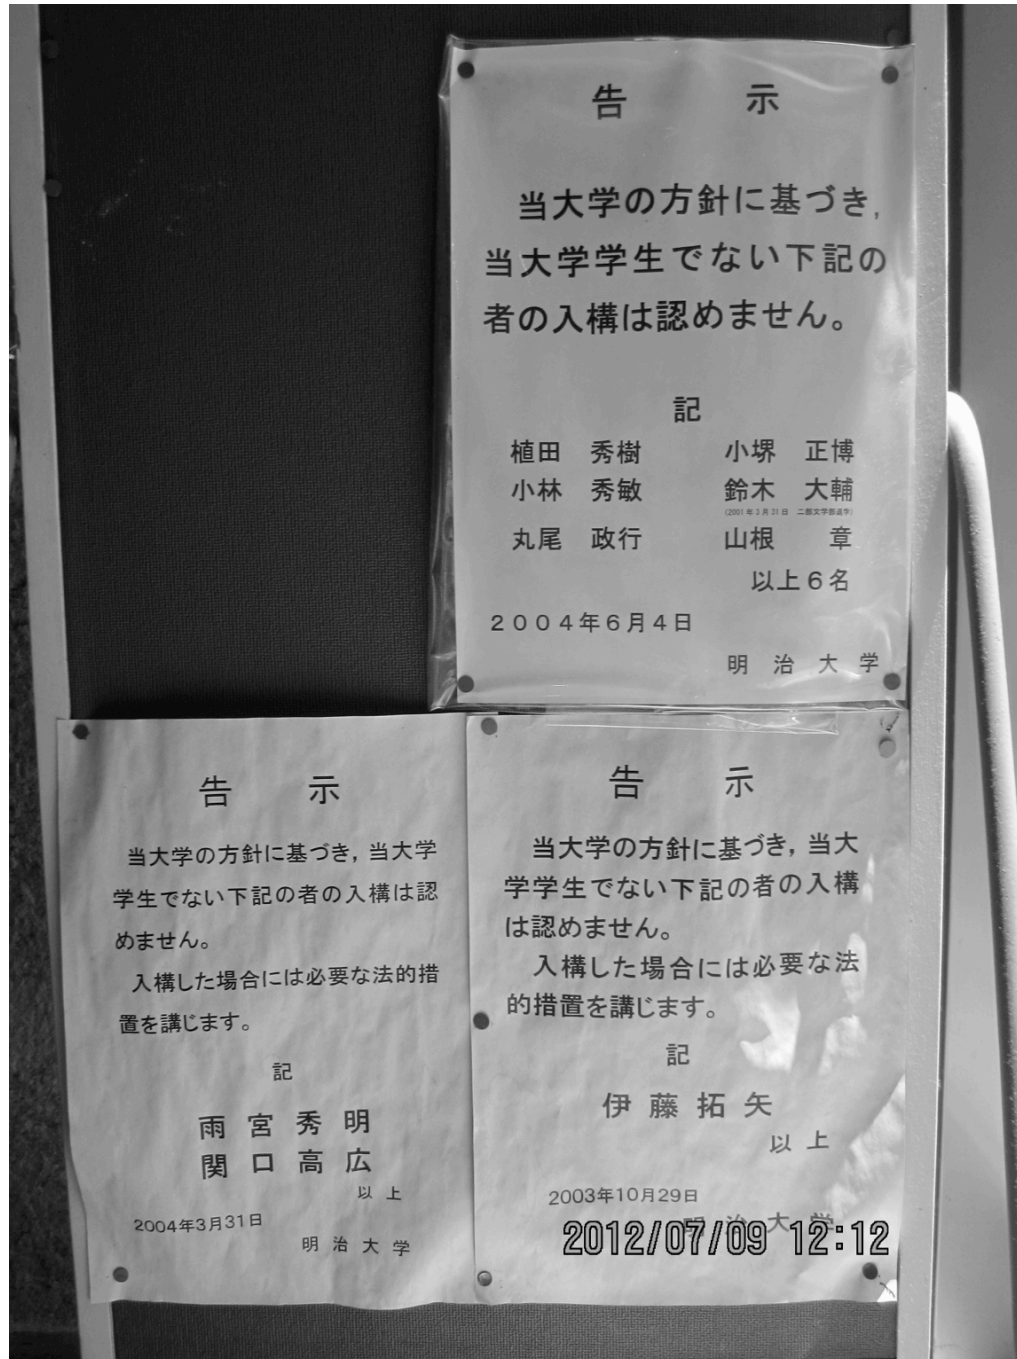 告　示
当大学の方針に基づき，
当大学学生でない下記の
者の入構は認めません。
記
植田　秀樹　小堺　正博
小林　秀敏　鈴木　大輔
(2001年3月31日　二部文学部退学)
丸尾　政行　山根　章
以上６名
２００４年６月４日
明治大学
告　示
当大学の方針に基づき，当大学
学生でない下記の者の入構は認
めません。
入構した場合には必要な法的措
置を講じます。
記
雨宮秀明
関口高広
以上
2004年3月31日
明治大学
告　示
当大学の方針に基づき，当大
学学生でない下記の者の入構
は認めません。
入構した場合には必要な法
的措置を講じます。
記
伊藤拓矢
以上
2003年10月29日
明治大学
2012/07/09 12:12